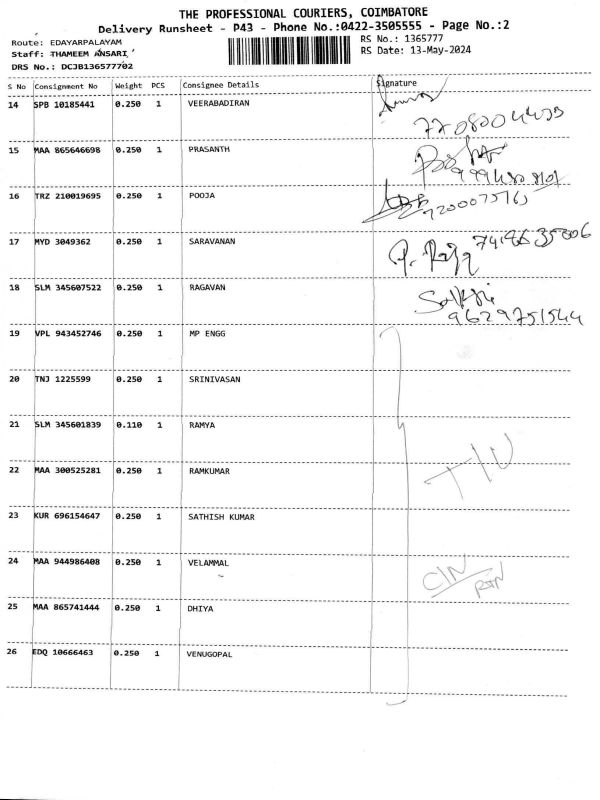 THE PROFESSIONAL COURIERS, COIMBATORE
Delivery Runsheet - P43 - Phone No.:0422-3505555 - Page No.:2
Route: EDAYARPALAYAM
RS No.: 1365777
Staff: THAMEEM ANSARI,
RS Date: 13-May-2024
DRS No.: DCJB136577702
S No Consignment No Weight PCS Consignee Details Signature
14 SPB 10185441 0.250 1 VEERABADIRAN
15 MAA 865646698 0.250 1 PRASANTH
16 TRZ 210019695 0.250 1 POOJA
9200075763
17 MYD 3049362 0.250 1 SARAVANAN
18 SLM 345607522 0.250 1 RAGAVAN
9629751544
19 VPL 943452746 0.250 1 MP ENGG
20 TNJ 1225599 0.250 1 SRINIVASAN
21 SLM 345601839 0.110 1 RAMYA
22 MAA 300525281 0.250 1 RAMKUMAR
23 KUR 696154647 0.250 1 SATHISH KUMAR
24 MAA 944986408 0.250 1 VELAMMAL
25 MAA 865741444 0.250 1 DHIYA
26 EDQ 10666463 0.250 1 VENUGOPAL